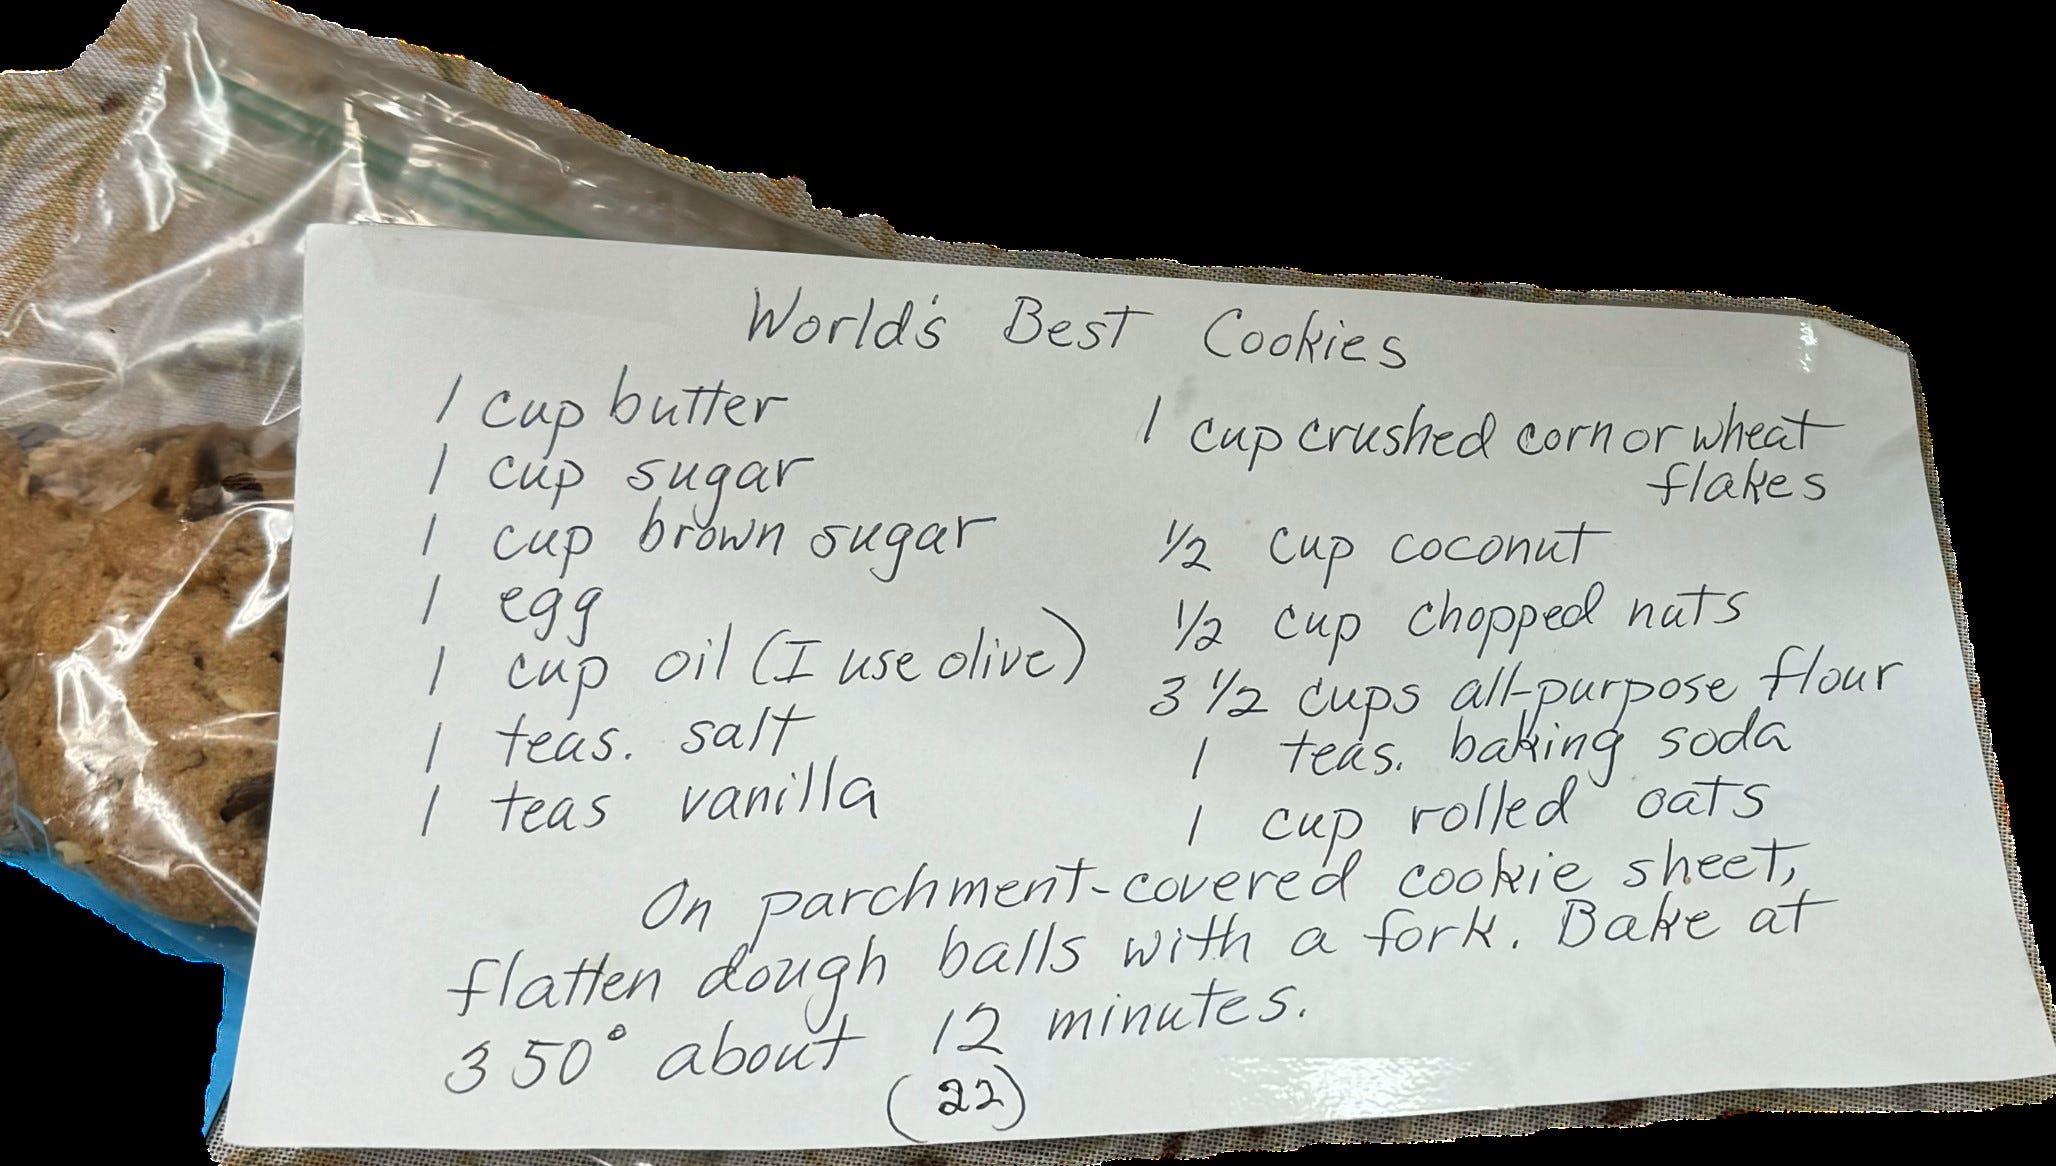 World's Best Cookies
1 cup butter
1 cup sugar
1 cup brown sugar
1 egg
1 cup oil (I use olive)
1 teas. salt
1 teas vanilla
1 cup crushed corn or wheat
flakes
1/2 cup coconut
1/2 cup chopped nuts
3 1/2 cups all-purpose flour
1 teas. baking soda
1 cup rolled oats
On parchment-covered cookie sheet,
flatten dough balls with a fork. Bake at
350° about 12 minutes.
(22)